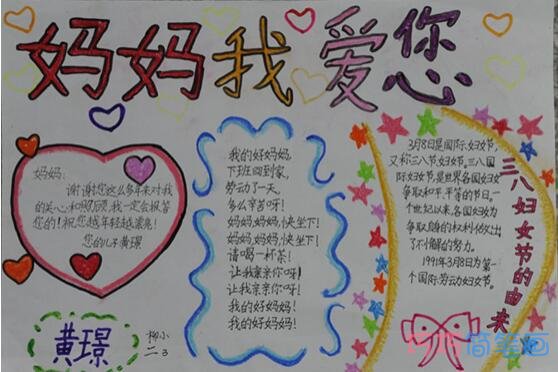 妈妈我爱您
妈妈:
谢谢您这么多年来对我
的关心和照顾,我一定会报答
您的!祝您越年轻越漂亮!
您的儿子黄璟
黄璟
柳小
二3
我的好妈妈,
下班回到家,
劳动了一天,
多么辛苦呀!
妈妈,妈妈,快坐下!
妈妈,妈妈,快坐下!
请喝一杯茶!
让我亲亲你呀!
让我亲亲你呀!
我的好妈妈!
我的好妈妈!
3月8日是国际妇女节,
又称三八节,妇女节。三八国
际妇女节,是世界各国妇女
争取和平、平等的节日。一
个世纪以来,各国妇女为
争取的权利做出
了不懈的努力。
1991年3月8日为第一
个国际劳动妇女节。
三八妇女节的由来
简笔画